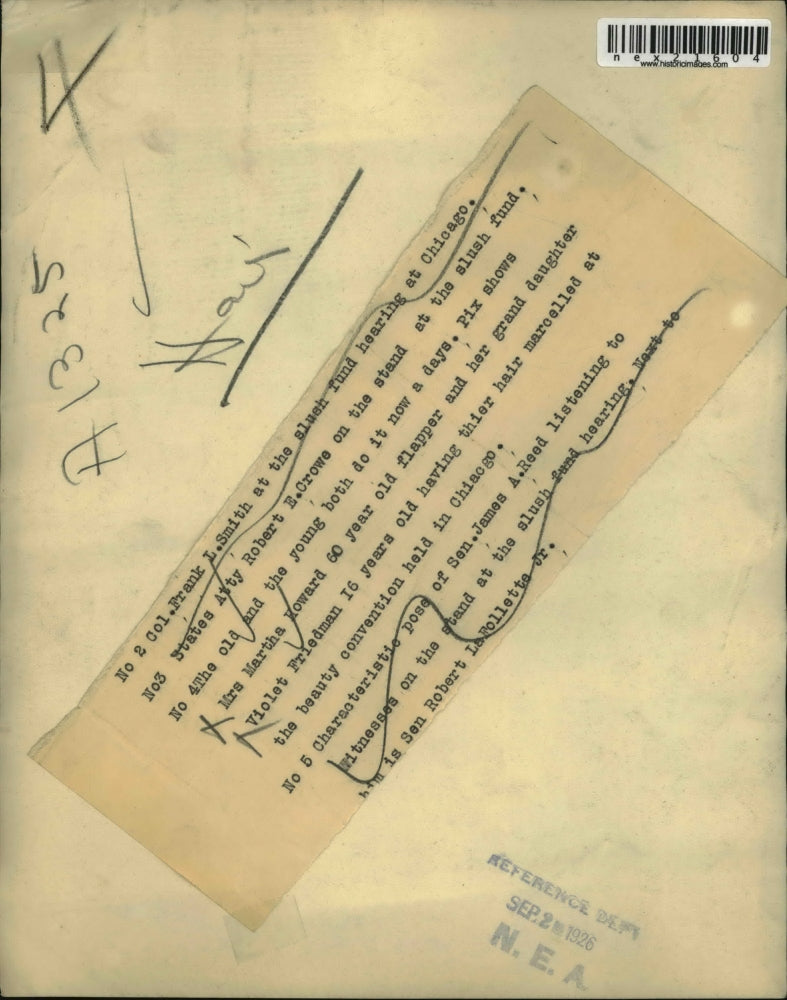 nex21604
www.historicimages.com
4
A1325
Hair
No 2 Col.Frank L.Smith at the slush fund hearing at Chicago.
No3 States Atty Robert E.Crowe on the stand at the slush fund.
No 4The old and the young both do it now a days. Pix shows
Mrs Martha Howard 60 year old flapper and her grand daughter
Violet Friedman I6 years old having thier hair marcelled at
the beauty convention held in Chiacgo.
No 5 Characteristic pose of Sen.James A.Reed listening to
Witnesses on the stand at the slush fund hearing. Next to
him is Sen Robert LaFollette Jr.
REFERENCE DEPT
SEP 2 1926
N. E. A.